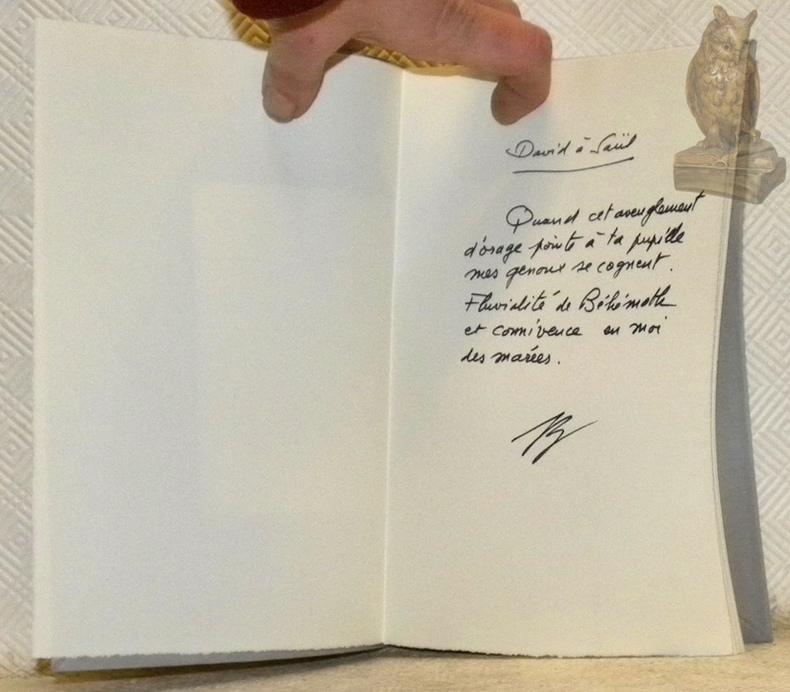 David à Saül
Quand cet aveuglement
d'orage pointe à ta pupille
mes genoux se cognent.
Fluvialité de Béhémoth
et connivence en moi
des marées.